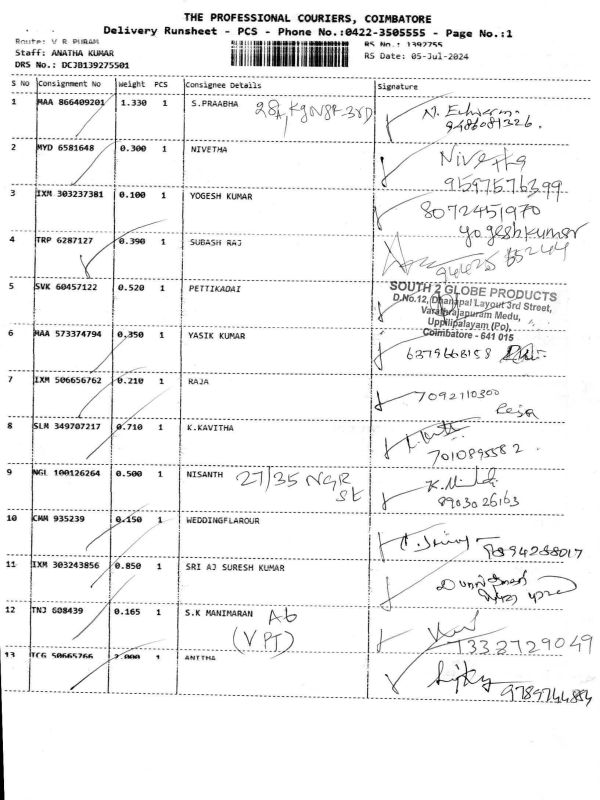 THE PROFESSIONAL COURIERS, COIMBATORE
Delivery Runsheet - PCS - Phone No.:0422-3505555 - Page No.:1
Route: V R PURAM
RS No.: 1392755
Staff: ANATHA KUMAR
RS Date: 05-Jul-2024
DRS No.: DCJB139275501
S No Consignment No Weight PCS Consignee Details Signature
1 MAA 866409201 1.330 1 S.PRAABHA
9486081326.
2 MYD 6581648 0.300 1 NIVETHA Nivetha
9597576399
3 IXM 303237381 0.100 1 YOGESH KUMAR 8072451970
yogeshkumar
4 TRP 6287127 0.390 1 SUBASH RAJ
5 SVK 60457122 0.520 1 PETTIKADAI
SOUTH 2 GLOBE PRODUCTS
D.No.12, Dhanapal Layout 3rd Street,
Varatharajapuram Medu,
Uppilipalayam (Po),
Coimbatore - 641 015
6 MAA 573374794 0.350 1 YASIK KUMAR 6379668158
7 IXM 506656762 0.210 1 RAJA 7092110300
Raja
8 SLM 349707217 0.710 1 K.KAVITHA
7010895582.
9 NGL 100126264 0.500 1 NISANTH 27/35 NGR
St
8903026163
10 CMM 935239 0.150 1 WEDDINGFLAROUR
11 IXM 303243856 0.850 1 SRI AJ SURESH KUMAR
12 TNJ 608439 0.165 1 S.K MANIMARAN Ab
(VPJ) 7332729049
13 TCG 50665766 2.000 1 ANITHA
9789744854